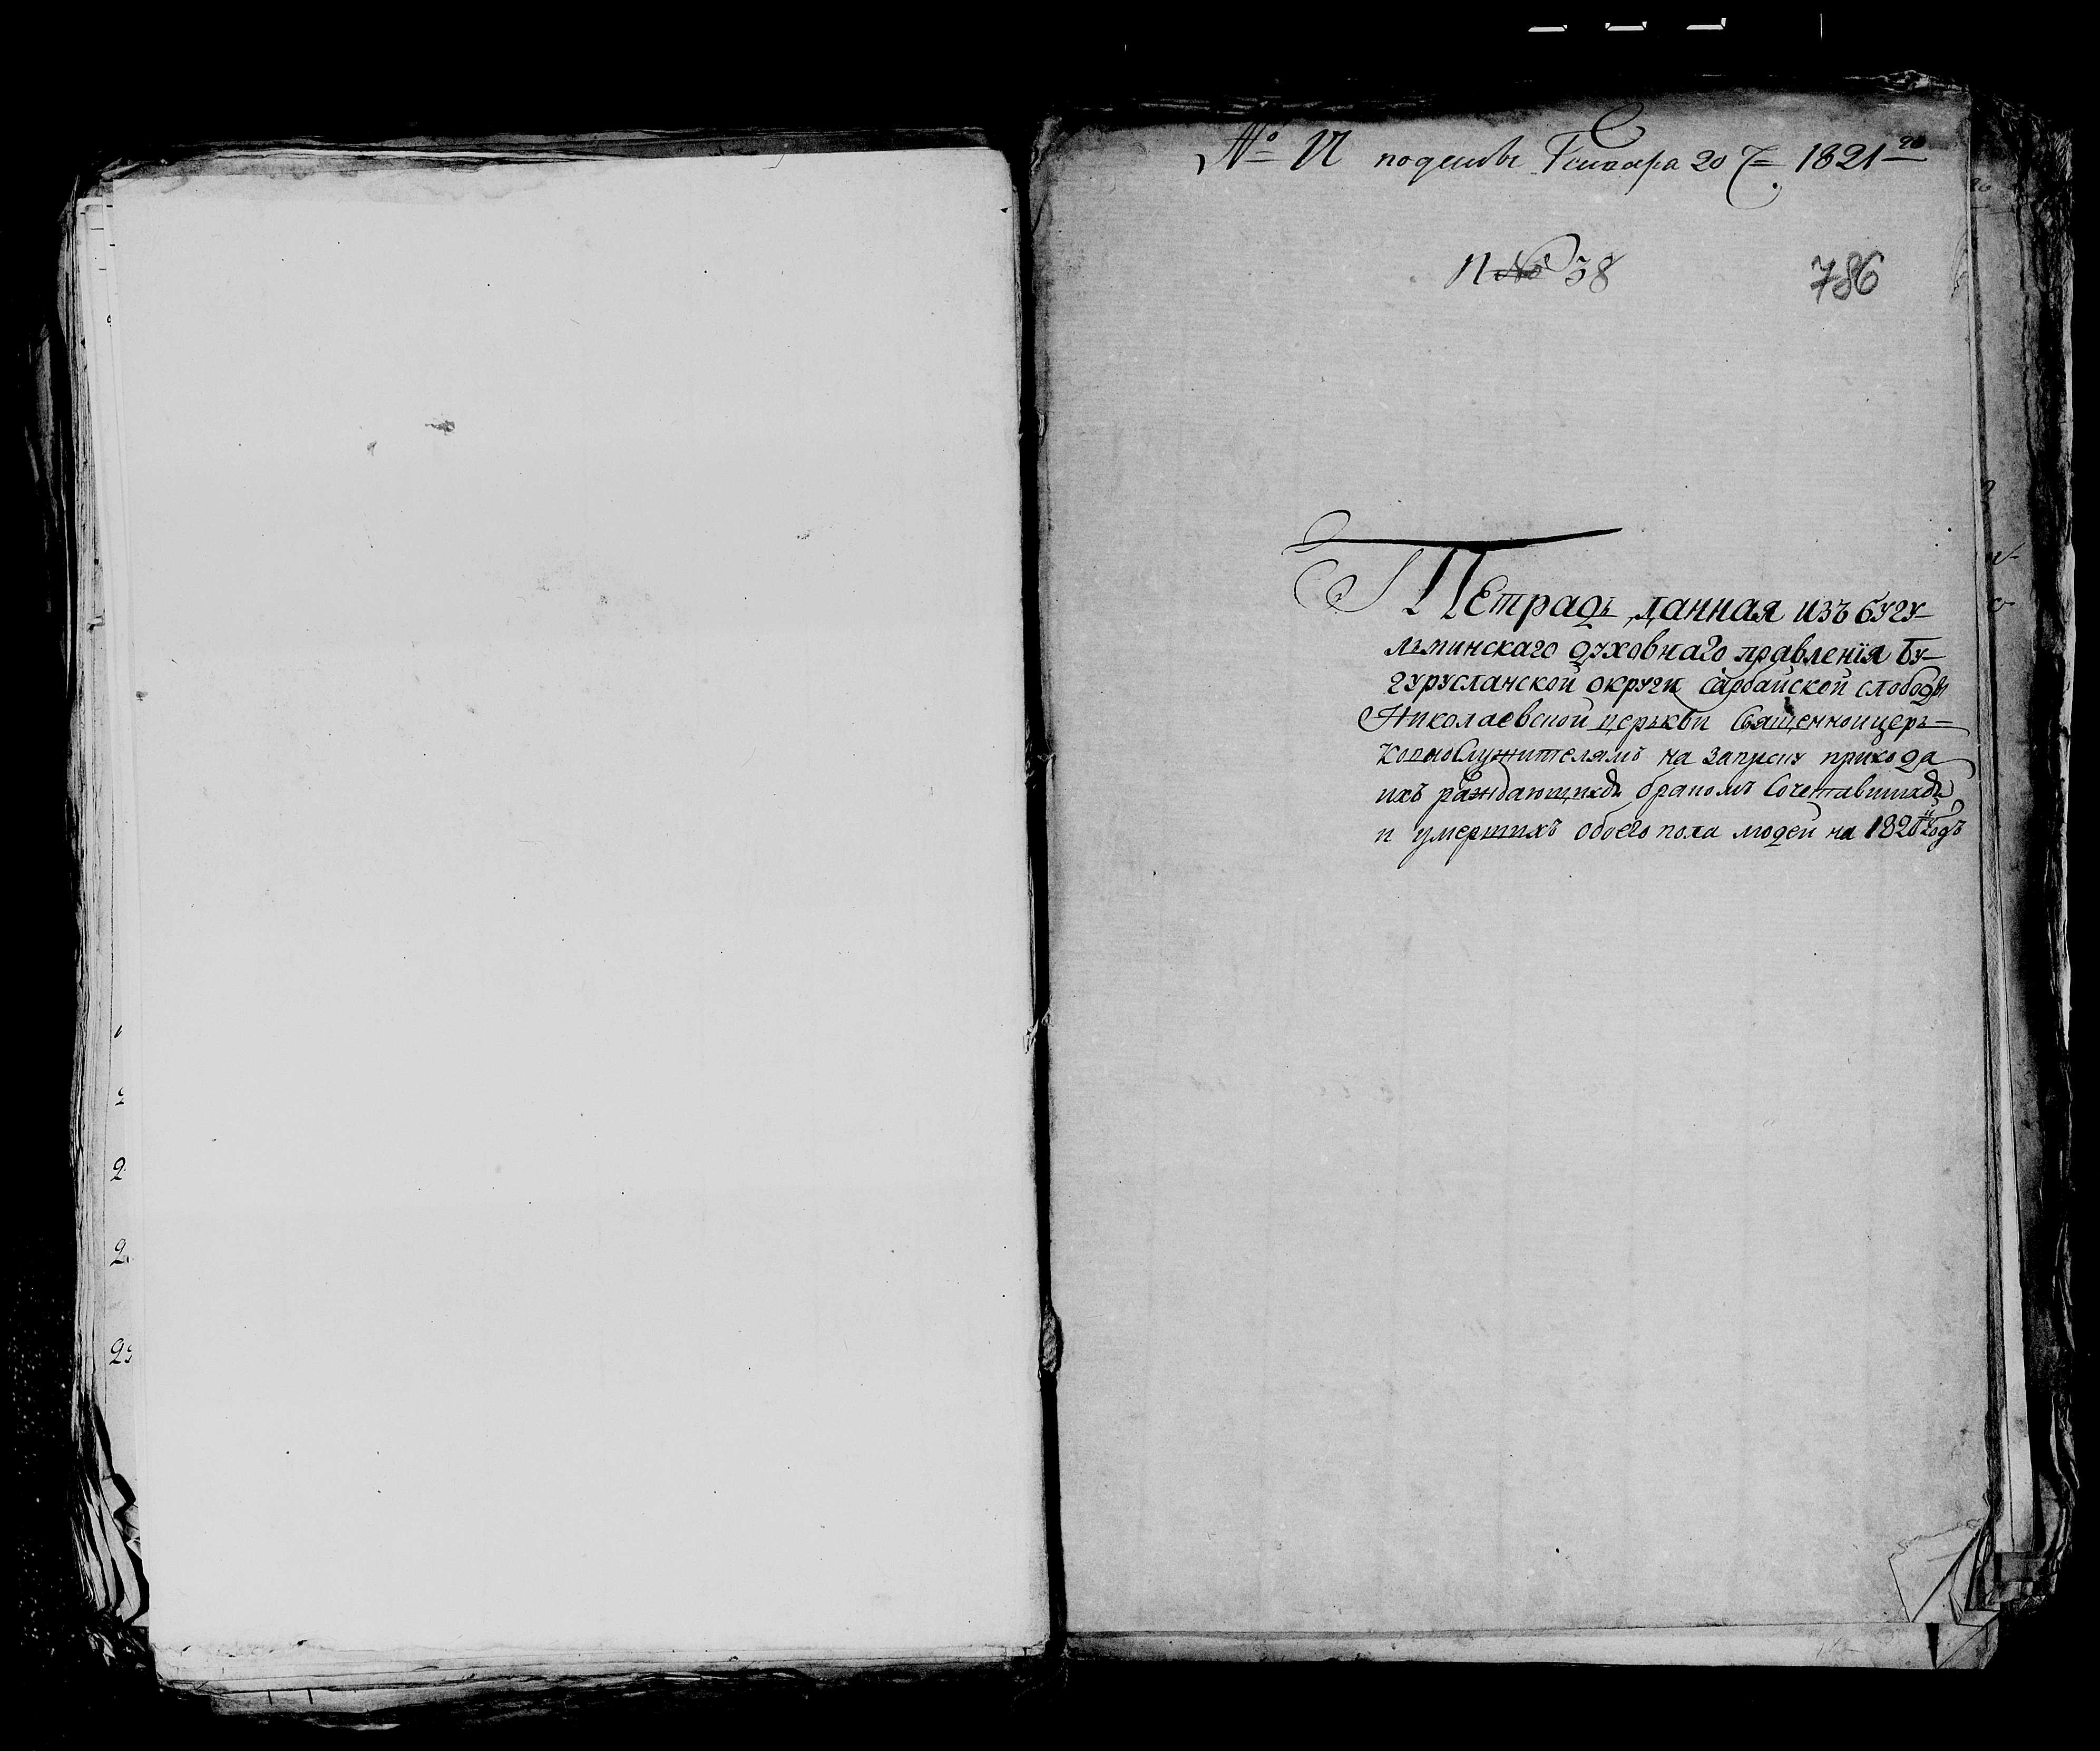 № 17 поданы Генваря 20 1821го
№ 38
786
Тетрадь данная изъ Бугу-
льминскаго духовнаго правленія Бу-
гурусланской округи Сарбайской слободы
Николаевской церькви Священноицерь-
ковнослужителямъ на записку прихода
ихъ раждающихся бракомъ Сочетавшихся
и умершихъ обоего пола людей на 1820й годъ